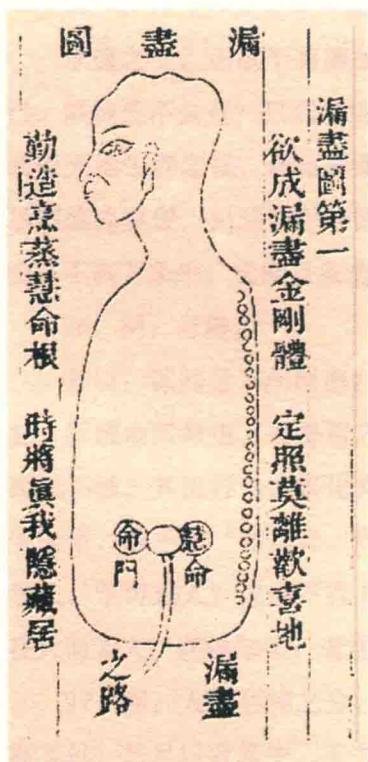 漏盡圖
漏盡圖第一
欲成漏盡金剛體　定照莫離歡喜地
勤造烹蒸慧命根　時將眞我隱藏居
慧命
命門
漏盡
之路